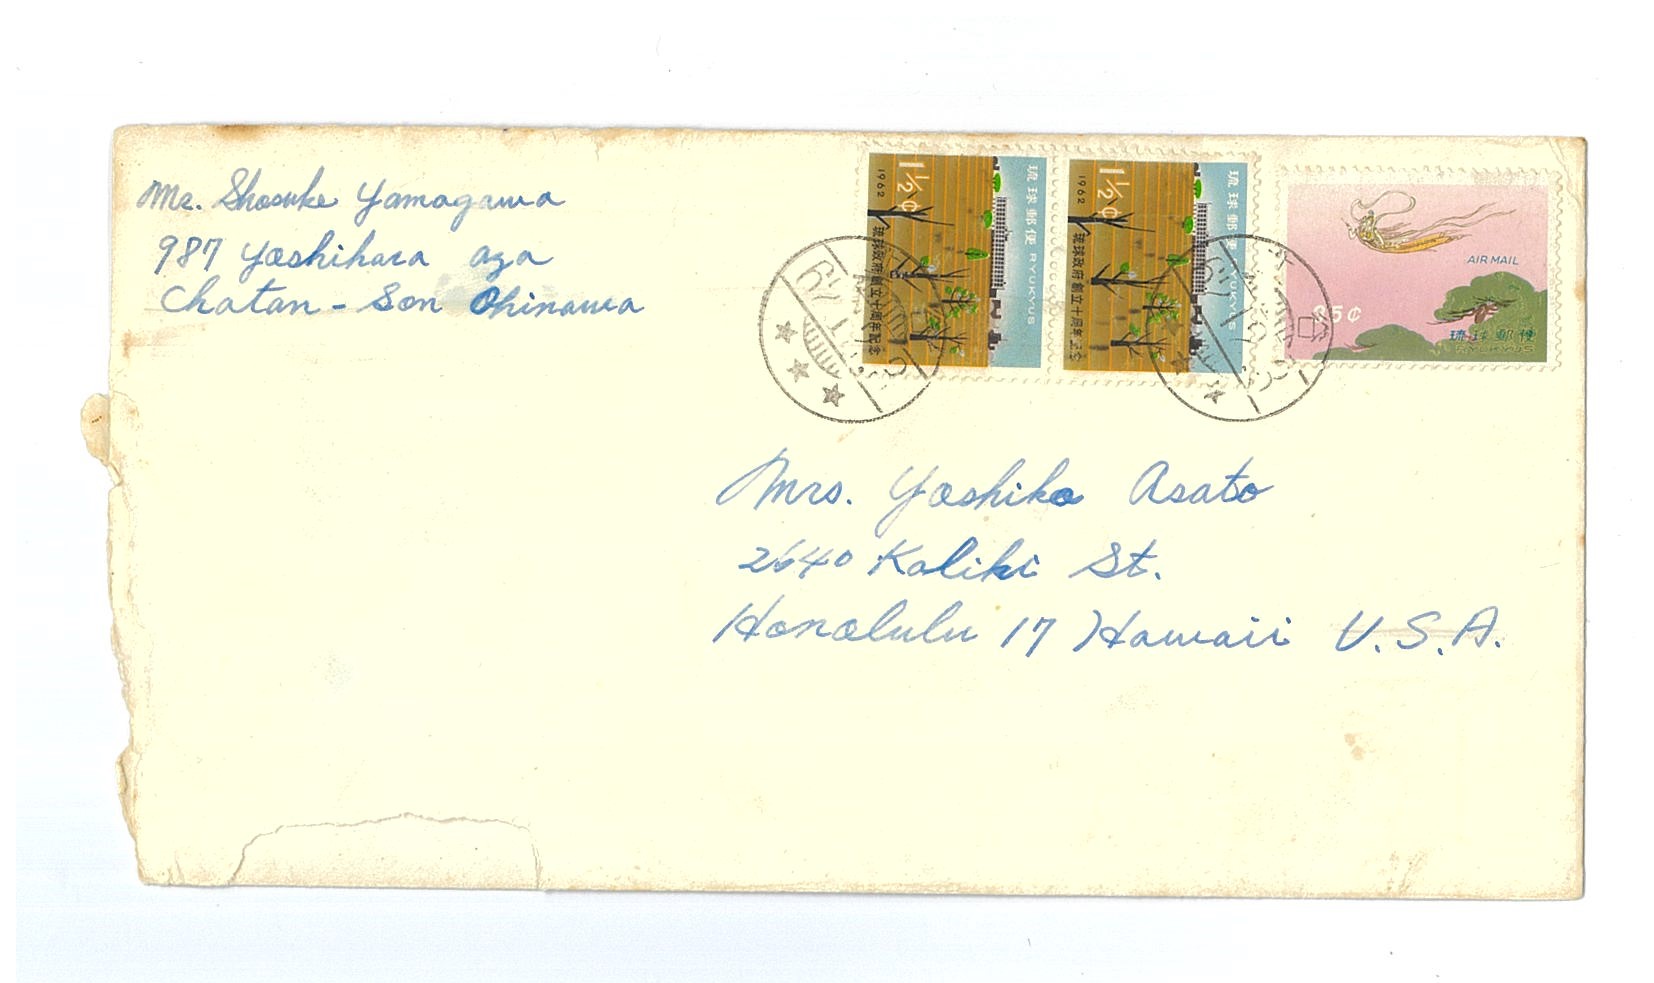 Mr. Shosuke Yamagawa
987 Yoshihara aza
Chatan-Son Okinawa
1½¢
1962
琉球郵便 RYUKYUS
琉球政府創立十周年記念
1½¢
1962
琉球郵便 RYUKYUS
琉球政府創立十周年記念
AIR MAIL
35¢
琉球郵便
RYUKYUS
Mrs. Yoshiko Asato
2640 Kaliki St.
Honolulu 17 Hawaii U.S.A.